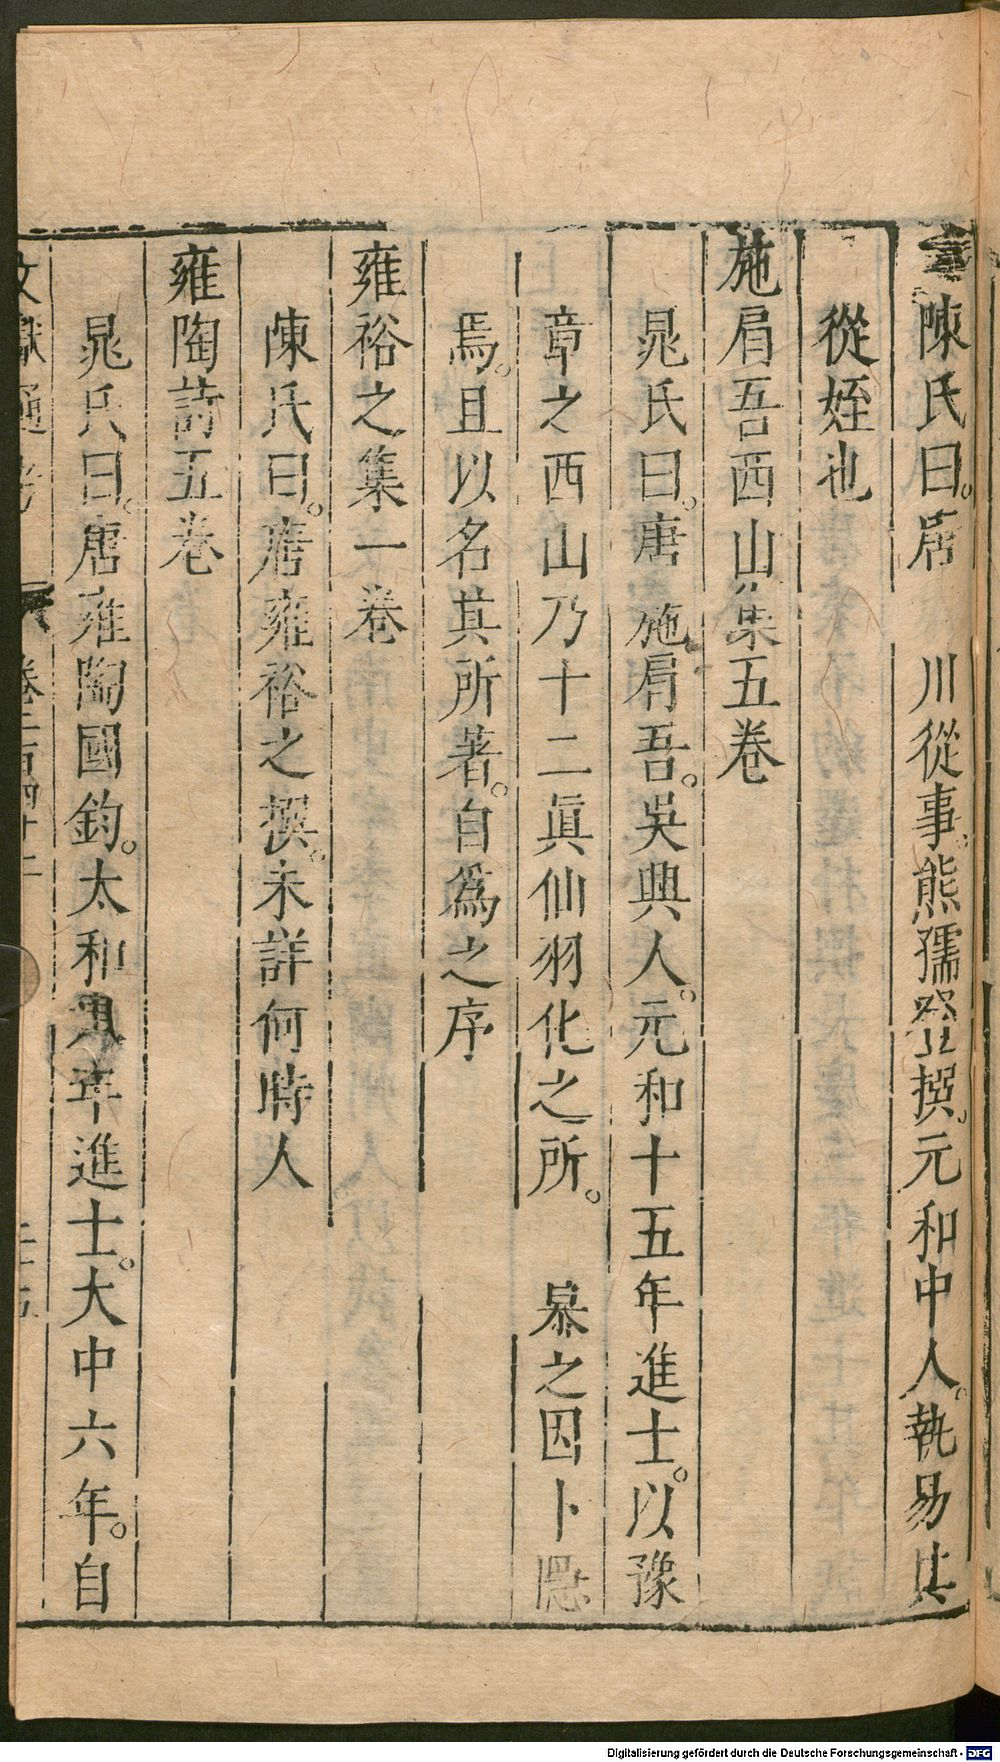 陳氏曰。唐 川從事。熊孺登撰。元和中人。執易其
從姪也
施肩吾西山集五卷
晁氏曰。唐 施肩吾。吳興人。元和十五年進士。以豫
章之西山乃十二眞仙羽化之所。 慕之因卜隱
焉。且以名其所著。自爲之序
雍裕之集一卷
陳氏曰。唐雍裕之撰。未詳何時人
雍陶詩五卷
晁氏曰。唐雍陶國鈞。太和 年進士。大中六年。自
文獻通考 卷二百四十二
Digitalisierung gefördert durch die Deutsche Forschungsgemeinschaft - DFG